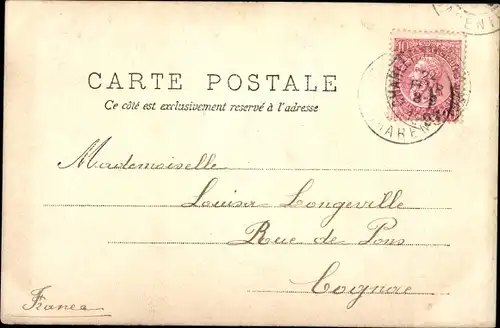 ARENE
10
CHARLE
CHARENT
CARTE POSTALE
Ce côté est exclusivement reservé à l'adresse
Mademoiselle
Louisa Longeville
Rue de Pons
Cognac
France